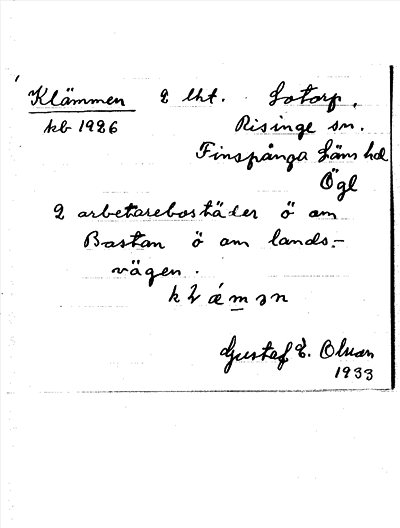 Klämmen 2 lht. Lotorp,
kb 1926 Risinge sn.
Finspånga Läns hd
Ögl
2 arbetarebostäder ö om
Bastan ö om lands-
vägen.
Gustaf E. Olson
1933